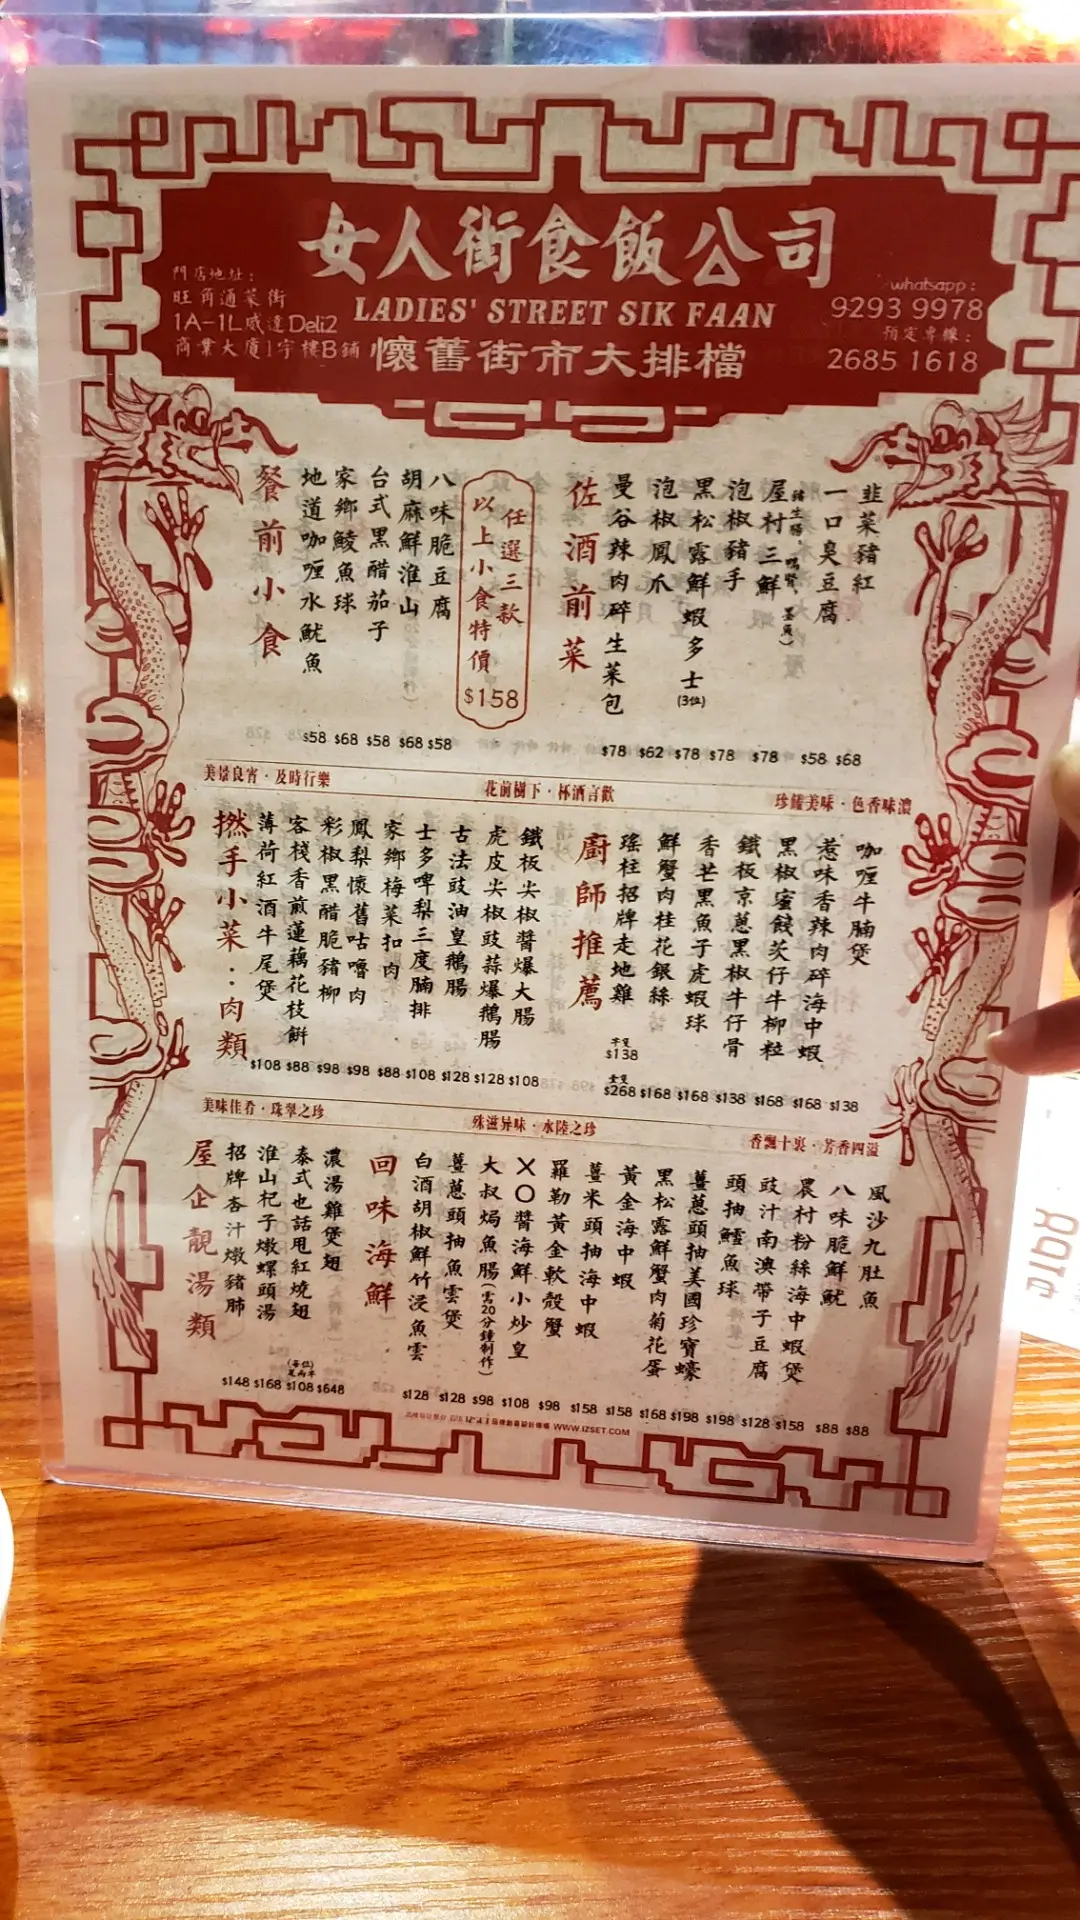 女人街食飯公司
LADIES' STREET SIK FAAN
懷舊街市大排檔
門店地址：
旺角通菜街
1A-1L威達Deli2
商業大廈1字樓B鋪
whatsapp：
9293 9978
預定專線：
2685 1618
餐前小食
地道咖喱水魷魚
$58
家鄉鯪魚球
$68
台式黑醋茄子
$58
胡麻鮮淮山
$68
八味脆豆腐
$58
任選三款
以上小食特價
$158
佐酒前菜
曼谷辣肉碎生菜包
$78
泡椒鳳爪
$62
黑松露鮮蝦多士(3位)
$78
泡椒豬手
$78
屋村三鮮
$78
一口臭豆腐
$58
韭菜豬紅
$68
美景良宵·及時行樂
花前樹下·杯酒言歡
珍饈美味·色香味濃
撚手小菜：肉類
薄荷紅酒牛尾煲
$108
客棧香煎蓮藕花枝餅
$88
彩椒黑醋脆豬柳
$98
鳳梨懷舊咕嚕肉
$98
家鄉梅菜扣肉
$88
士多啤梨三度腩排
$108
古法豉油皇鵝腸
$128
虎皮尖椒豉蒜爆鵝腸
$128
鐵板尖椒醬爆大腸
$108
廚師推薦
瑤柱招牌走地雞
半隻
$138
全隻
$268
鮮蟹肉桂花銀絲
$168
香芒黑魚子虎蝦球
$168
鐵板京蔥黑椒牛仔骨
$138
黑椒蜜餞芡仔牛柳粒
$168
惹味香辣肉碎海中蝦
$168
咖喱牛腩煲
$138
美味佳肴·珠翠之珍
殊滋异味·水陸之珍
香飄十裏·芳香四溢
屋企靚湯類
招牌杏汁燉豬肺
$148
淮山杞子燉螺頭湯
$168
泰式也話甩紅燒翅
(每位)
$108
濃湯雞煲翅
$648
回味海鮮
白酒胡椒鮮竹浸魚雲
$128
薑蔥頭抽魚雲煲
$128
大叔焗魚腸(需20分鐘制作)
$98
XO醬海鮮小炒皇
$108
羅勒黃金軟殼蟹
$98
薑米頭抽海中蝦
$158
黃金海中蝦
$158
黑松露鮮蟹肉菊花蛋
$168
薑蔥頭抽美國珍寶蠔
$198
頭抽鱈魚球
$198
豉汁南澳帶子豆腐
$128
農村粉絲海中蝦煲
$158
八味脆鮮魷
$88
風沙九肚魚
$88
WWW.IZSET.COM